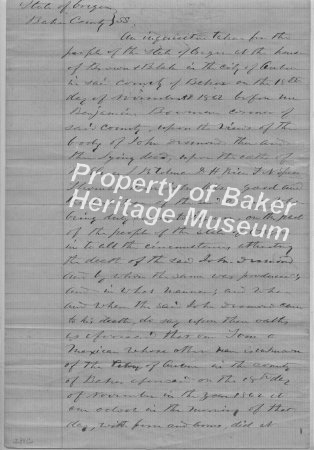 State of Oregon
Baker County } SS.
An inquisition taken for the
people of the State of Oregon at the house
of Brown & Blake in the City of Auburn
in said County of Baker on the 18th
day of November 1862 before me
Benjamin Bowman coroner of
said County, upon the view of the
body of John Desmond then and
there lying dead, upon the oaths of
J H Rice
good and
Property of Baker
Heritage Museum
being duly on the part
of the people of the State
in to all the circumstances attending
the death of the said John Desmond
and by whom the same was produced,
and in what manner, and who
and when the said John Desmond came
to his death, do say upon their oaths
as aforesaid that on Tom a
Mexican whose other name is unknown
of the City of Auburn in the County
of Baker aforesaid on the 18th day
of November in the year 1862 at
one oclock in the morning of that
day, with force and arms, did at